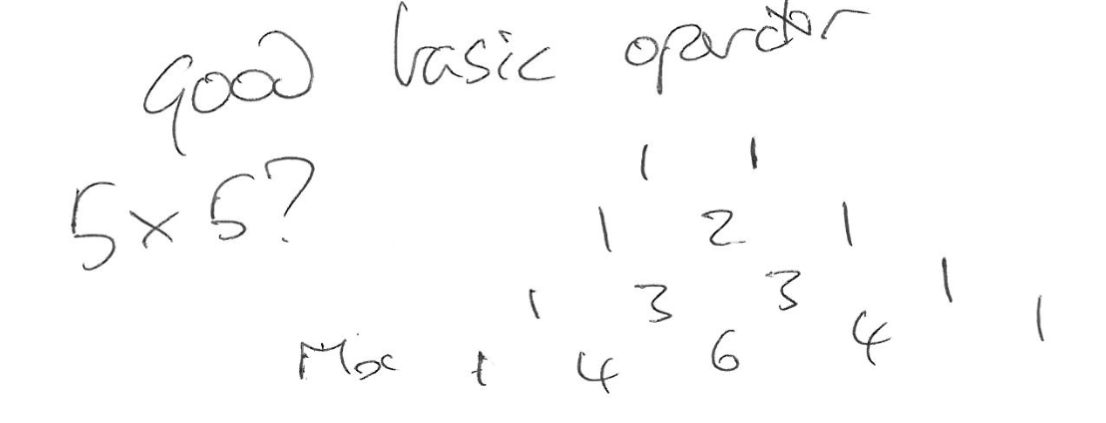 Good basic operator
1 1
5x5? 1 2 1
1 3 3 1
1 4 6 4 1